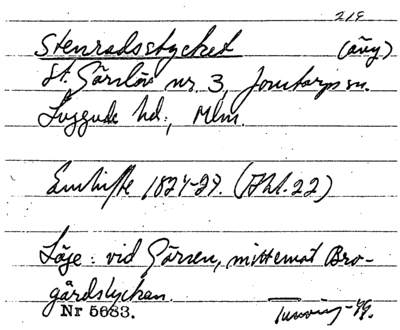 219
Stenradsstycket (äng)
St. Görslöv nr 3, Jonstorps sn.
Luggude hd., Mlm.
Enskifte 1824-29. (Akt. 22)
Läge: vid Görsen, mittemot Bro-
gårdslyckan.
Nr 5683. -49.